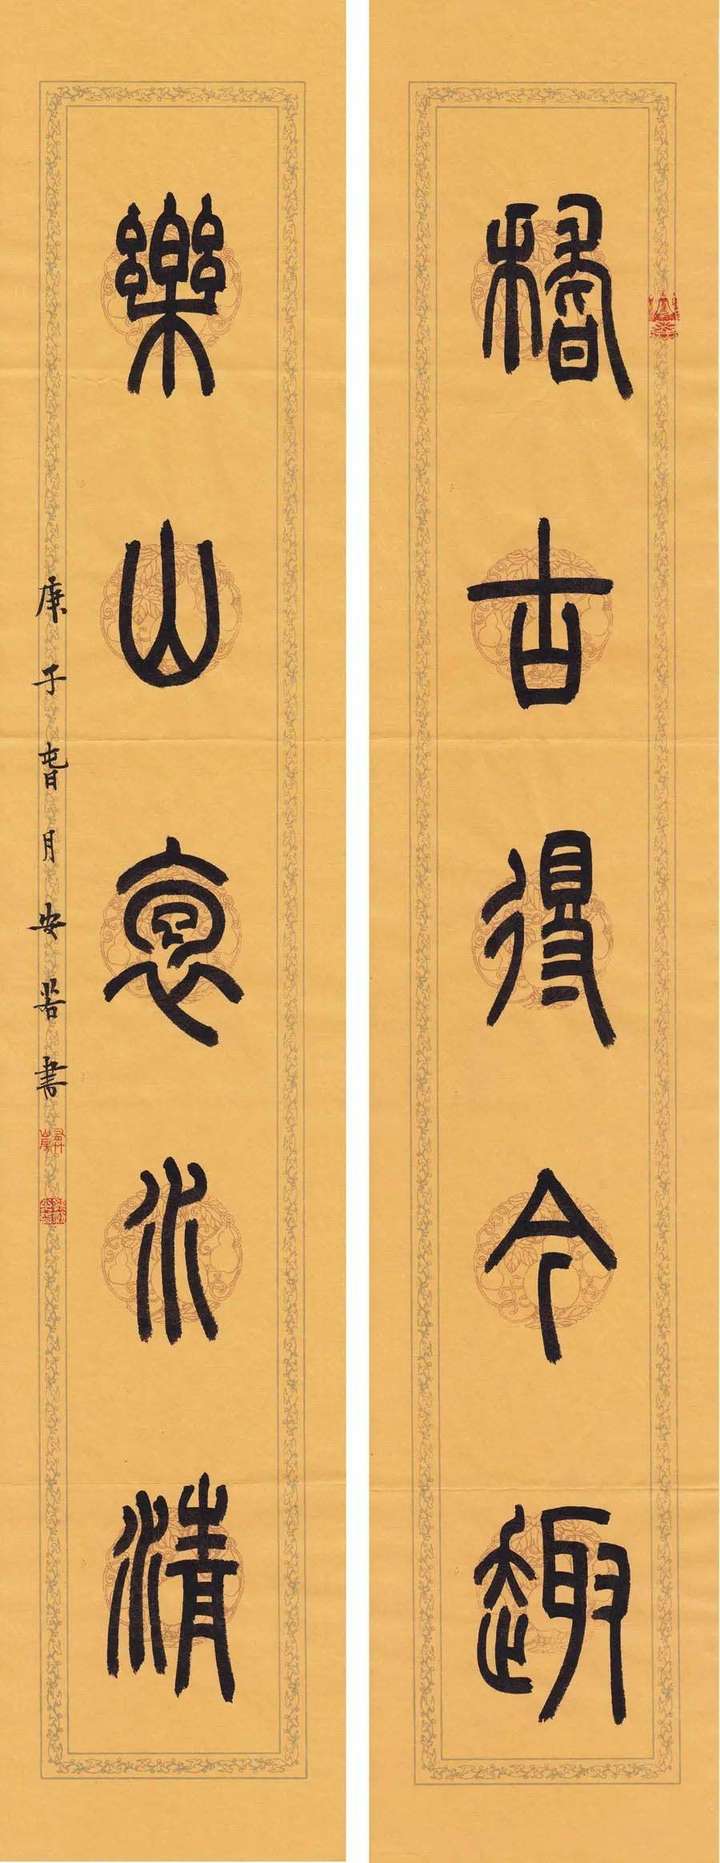 稽古得今趣
樂山 水清
庚子旾月安若書